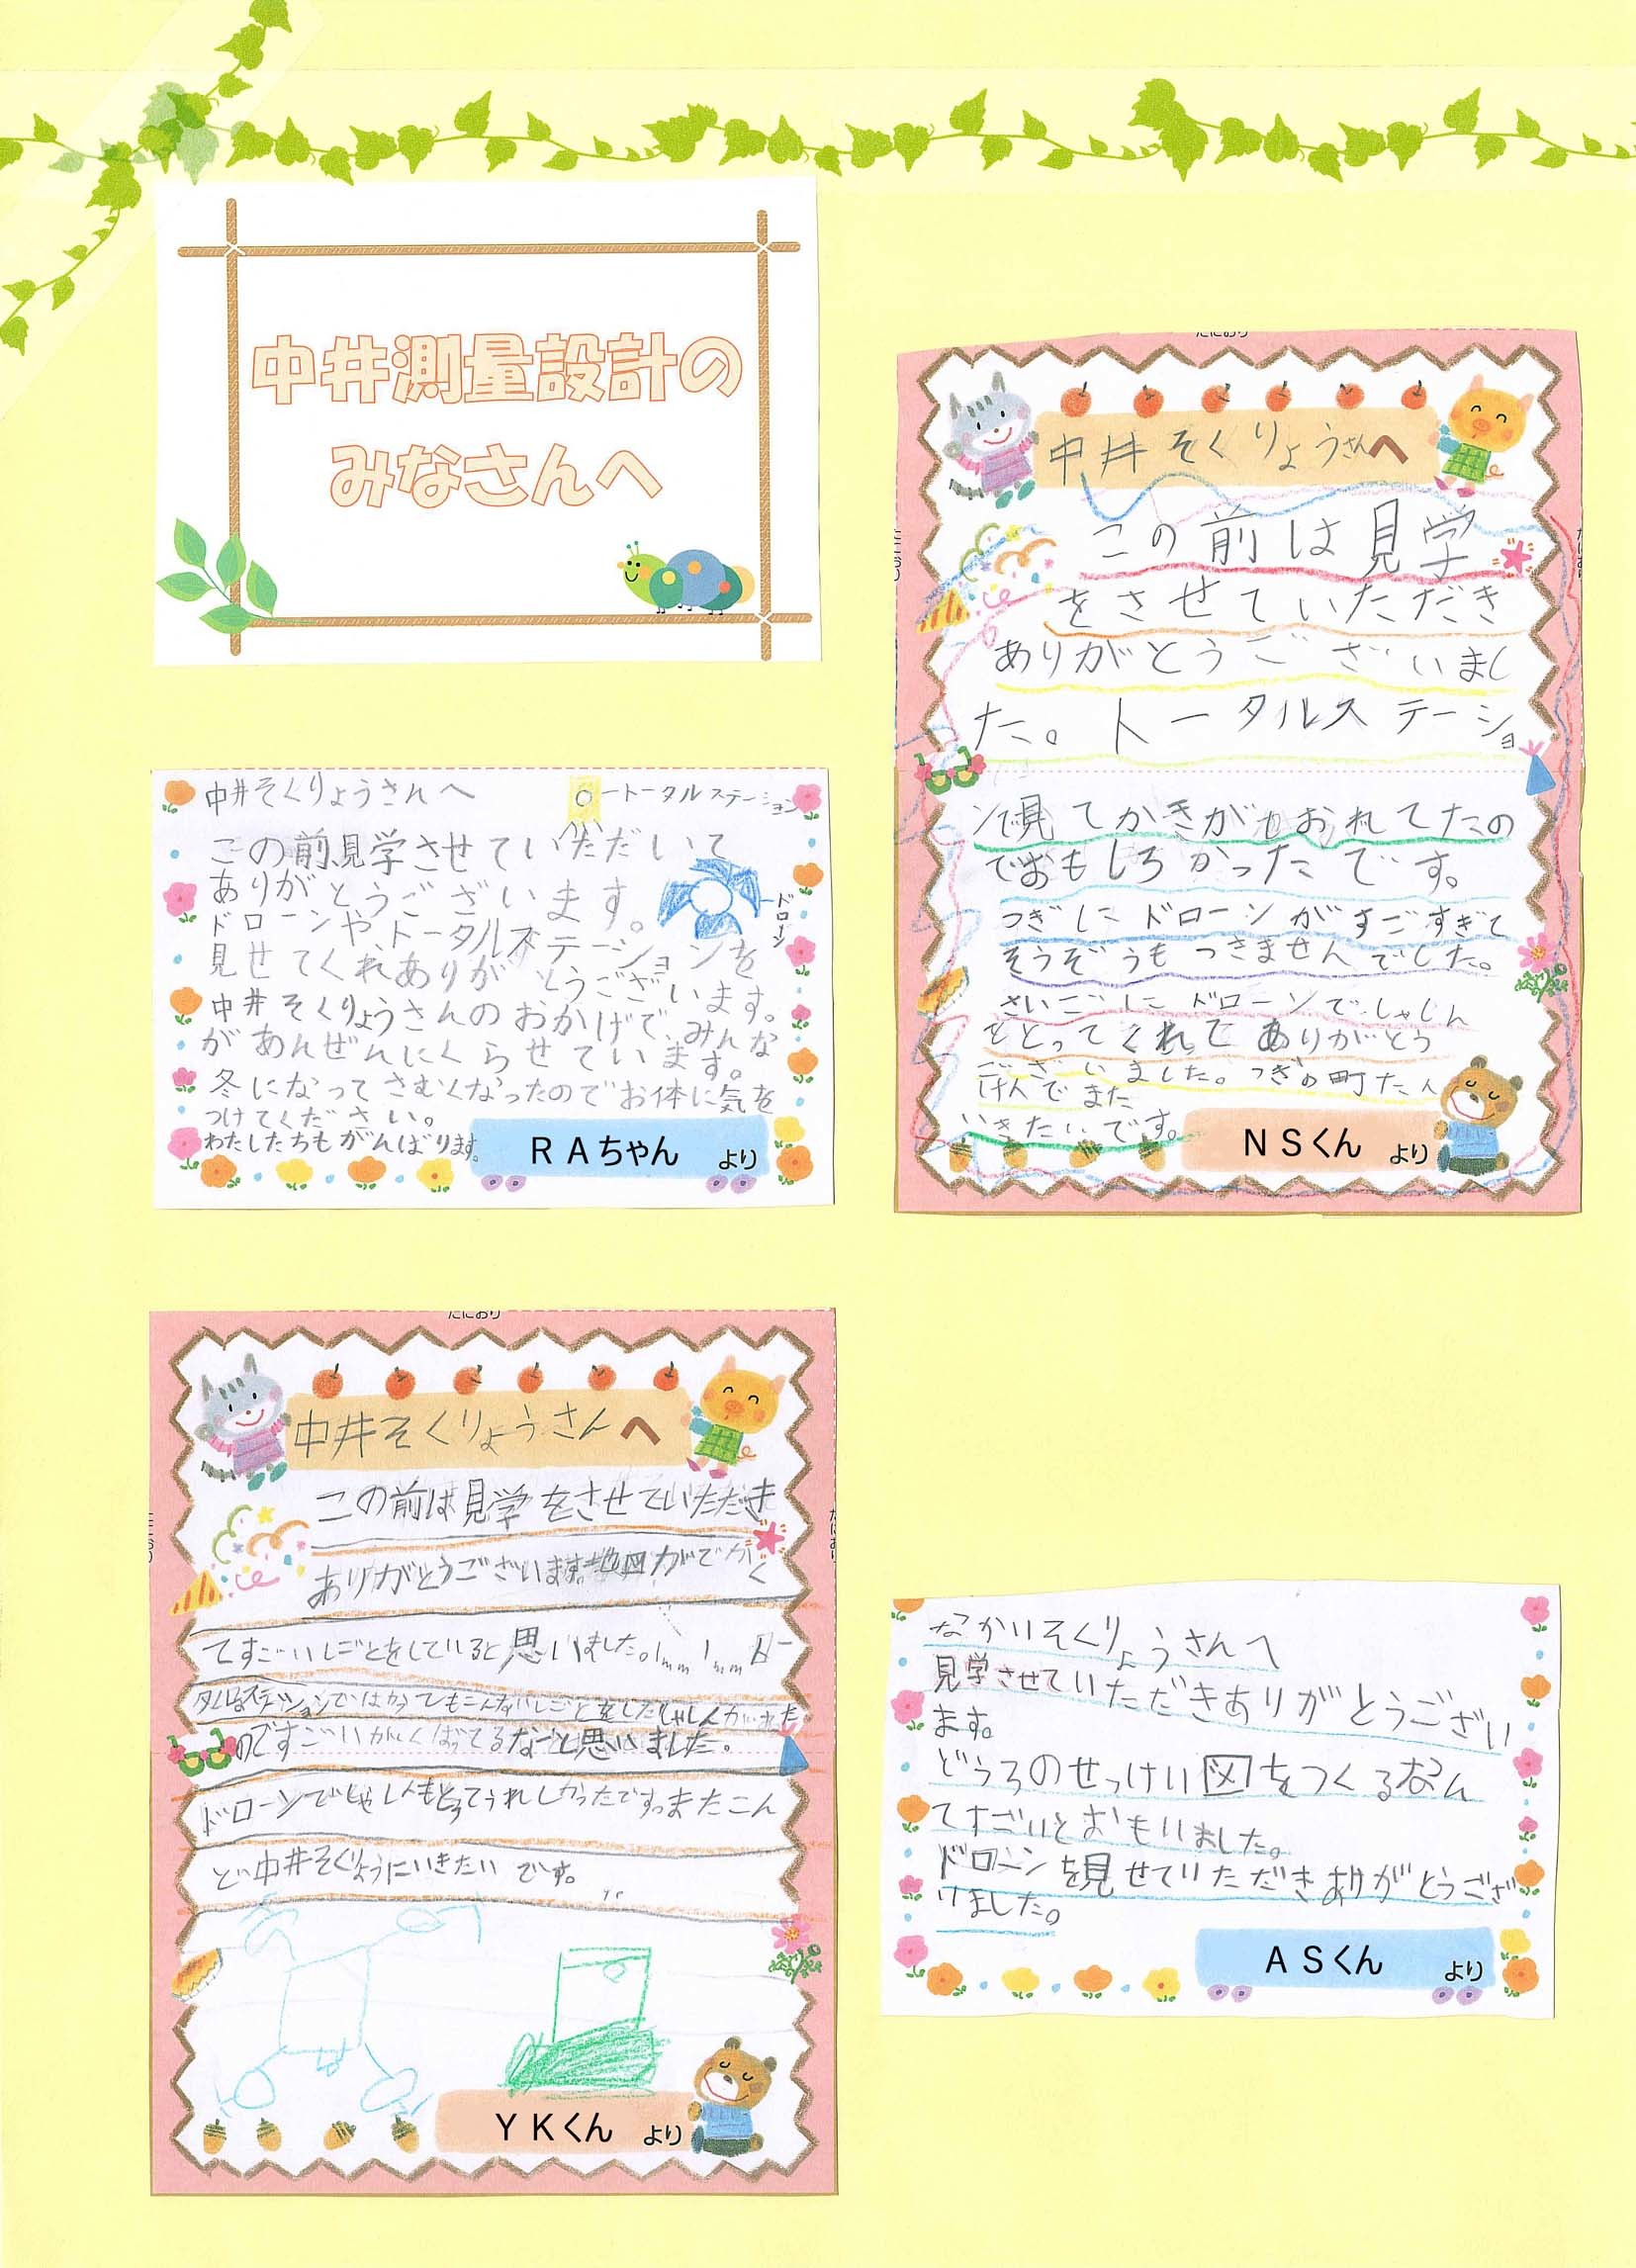 中井測量設計の
みなさんへ
中井そくりょうさんへ
トータルステーション
この前見学させていただいて
ありがとうございます。
ドローン
ドローンやトータルステーションを
見せてくれありがとうございます。
中井そくりょうさんのおかげで、みんな
があんぜんにくらせています。
冬になってさむくなったのでお体に気を
つけてください。
わたしたちもがんばります。
RAちゃん より
たにおり
中井そくりょうさんへ
この前は見学
をさせていただき
ありがとうございまし
た。トータルステーショ
ンで見てかきがおれてたの
でおもしろかったです。
つぎにドローンがすごすぎて
そうぞうもつきませんでした。
さいごにドローンでしゃしん
をとってくれてありがとう
ございました。つぎの町たん
けんでまた
いきたいです。
NSくん より
たにおり
中井そくりょうさんへ
この前は見学をさせていただき
ありがとうございます。地図がでかく
てすごいしごとをしていると思いました。1mm 1mm
ステーションではかってもこんなしごとをした
のですごいがんばってるなーと思いました。
ドローンでしゃしんもとってうれしかったですまたこん
ど中井そくりょうにいきたいです。
YKくん より
なかいそくりょうさんへ
見学させていただきありがとうござい
ます。
どうろのせっけい図をつくるなん
てすごいとおもいました。
ドローンを見せていただきありがとうござ
いました。
ASくん より